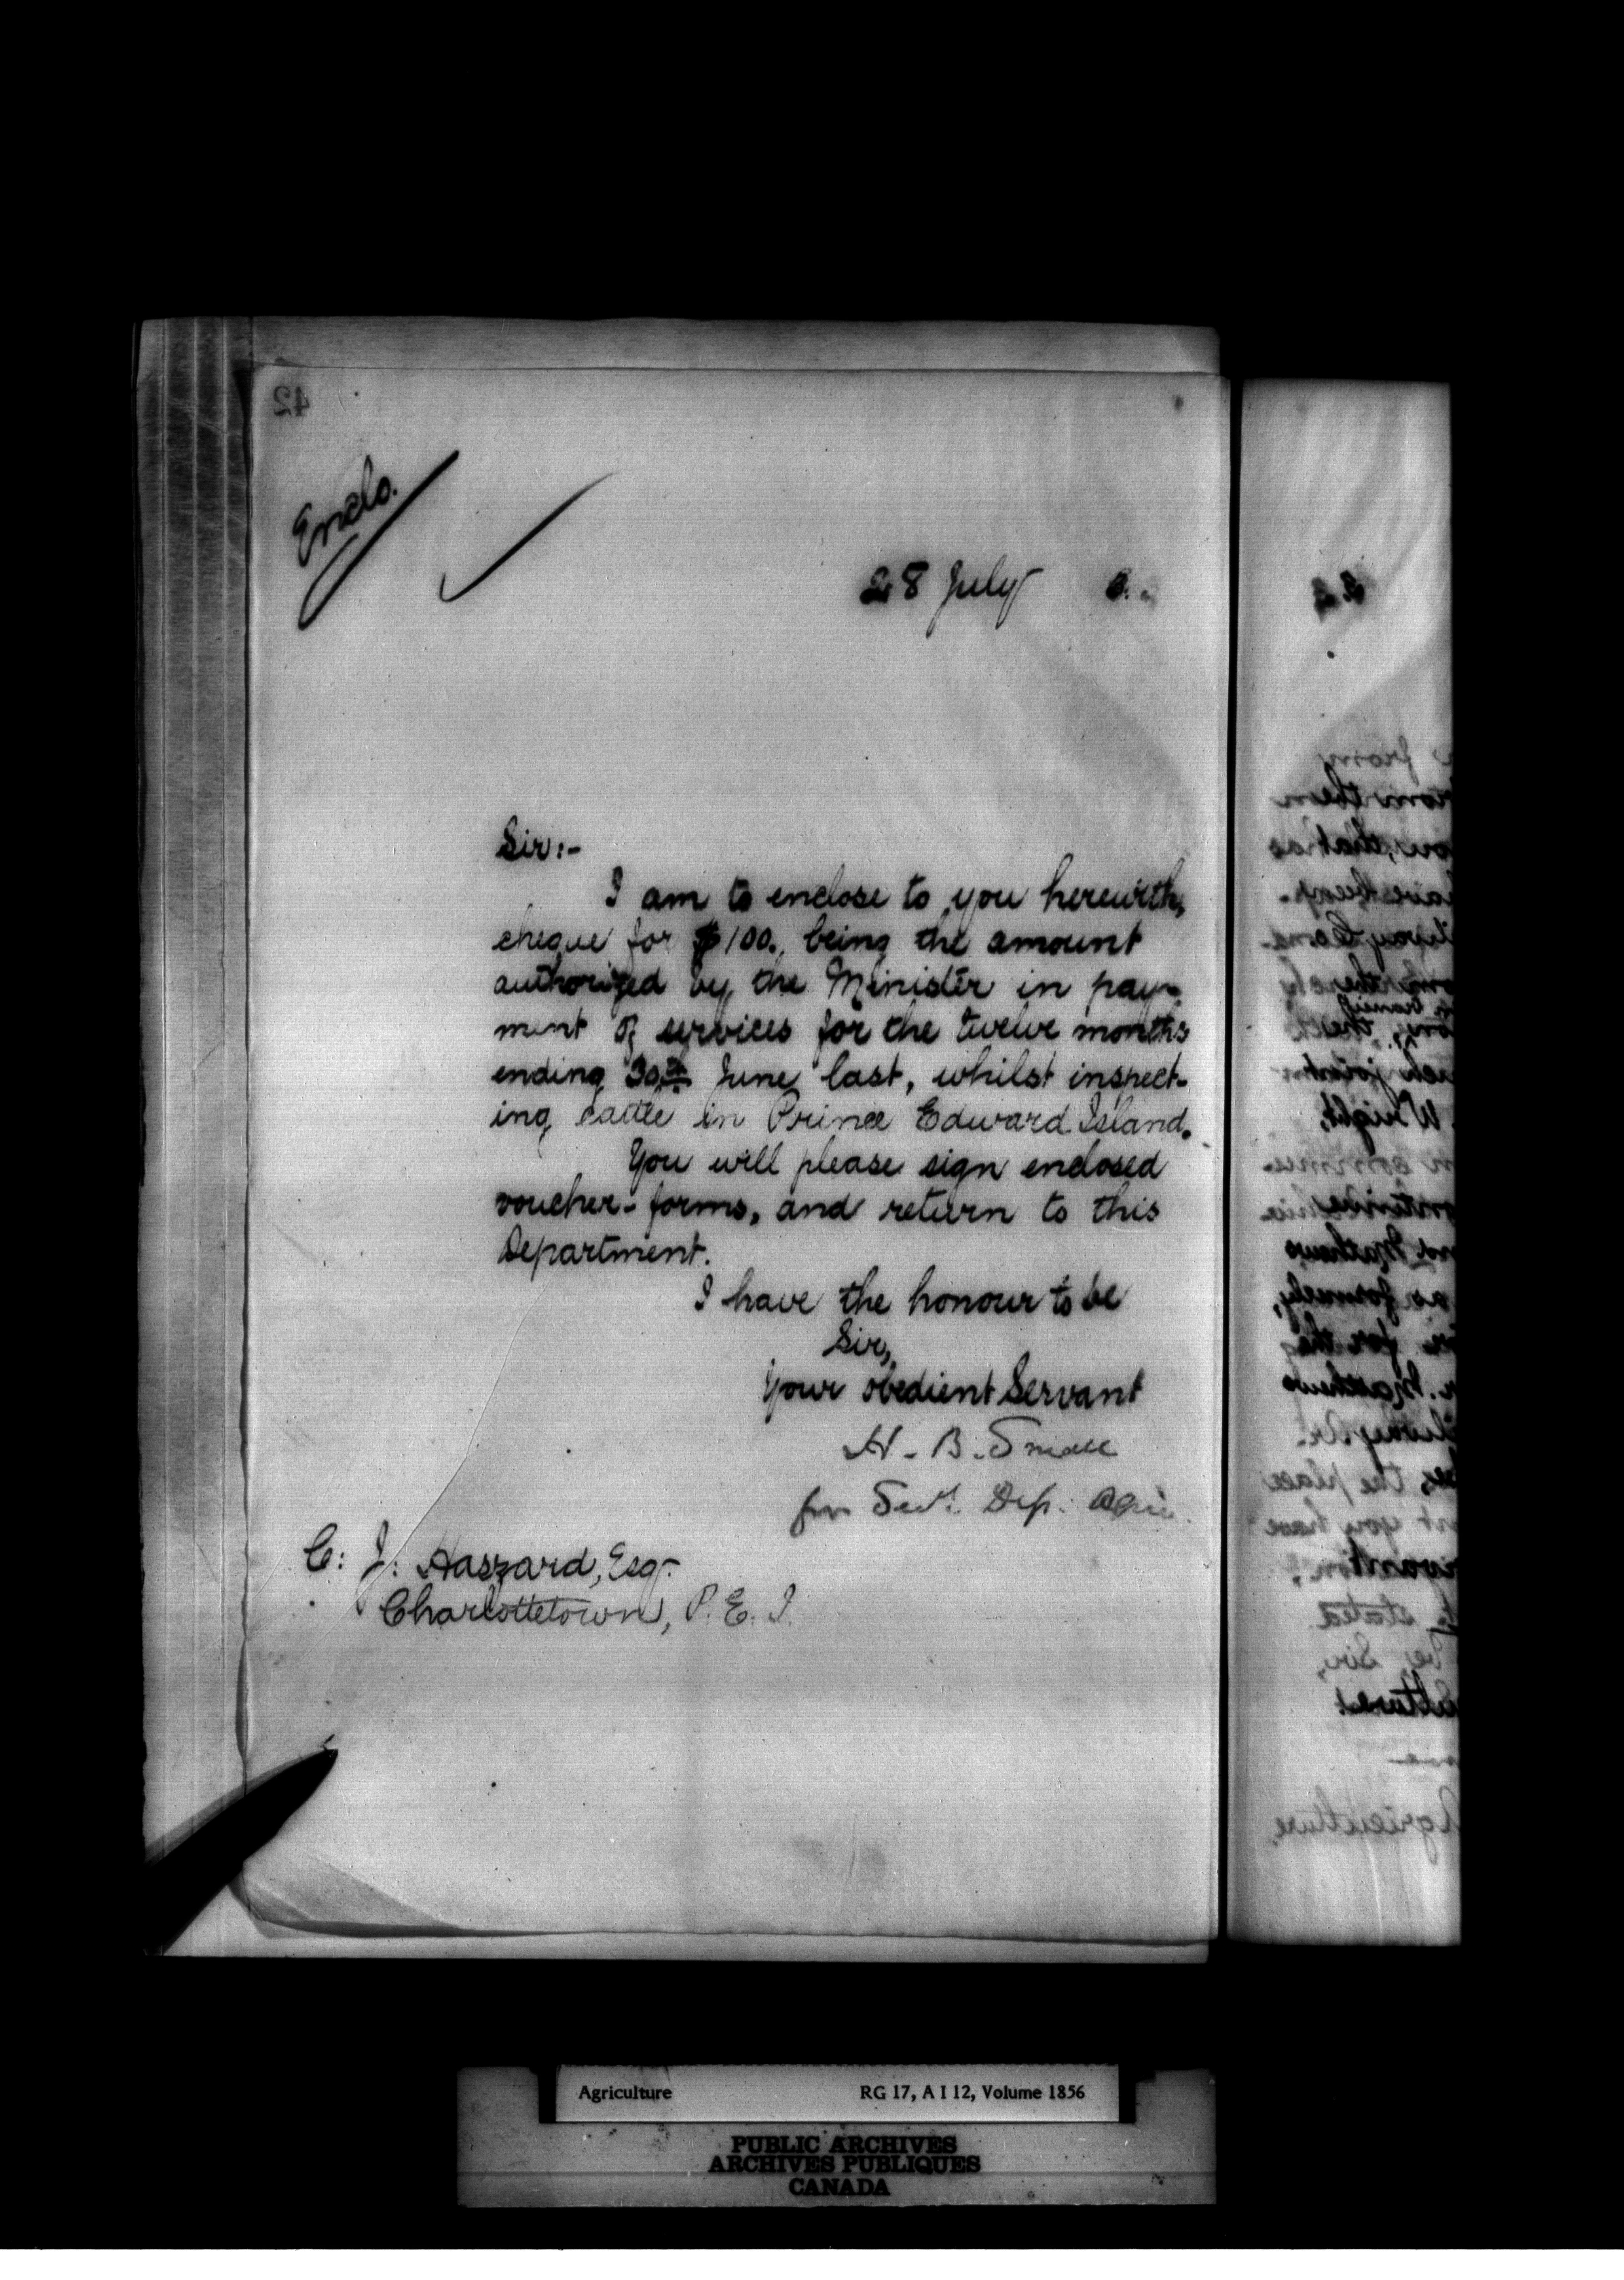 42
Enclo.
28 July
Sir:-
I am to enclose to you herewith,
cheque for $100., being the amount
authorized by the Minister in pay-
ment of services for the twelve months
ending 30th June last, whilst inspect-
ing cattle in Prince Edward Island.
You will please sign enclosed
voucher-forms, and return to this
Department.
I have the honour to be
Sir,
Your obedient Servant
H. B. Small
for Secy. Dep. Agric.
C: J: Haszard, Esq.
Charlottetown, P. E. I.
from
them
that as
have been
Wright,
Mathews
as formerly,
for the
Mathews
the place
you have
stated
be, Sir,
Agriculture
Agriculture RG 17, A I 12, Volume 1856
PUBLIC ARCHIVES
ARCHIVES PUBLIQUES
CANADA